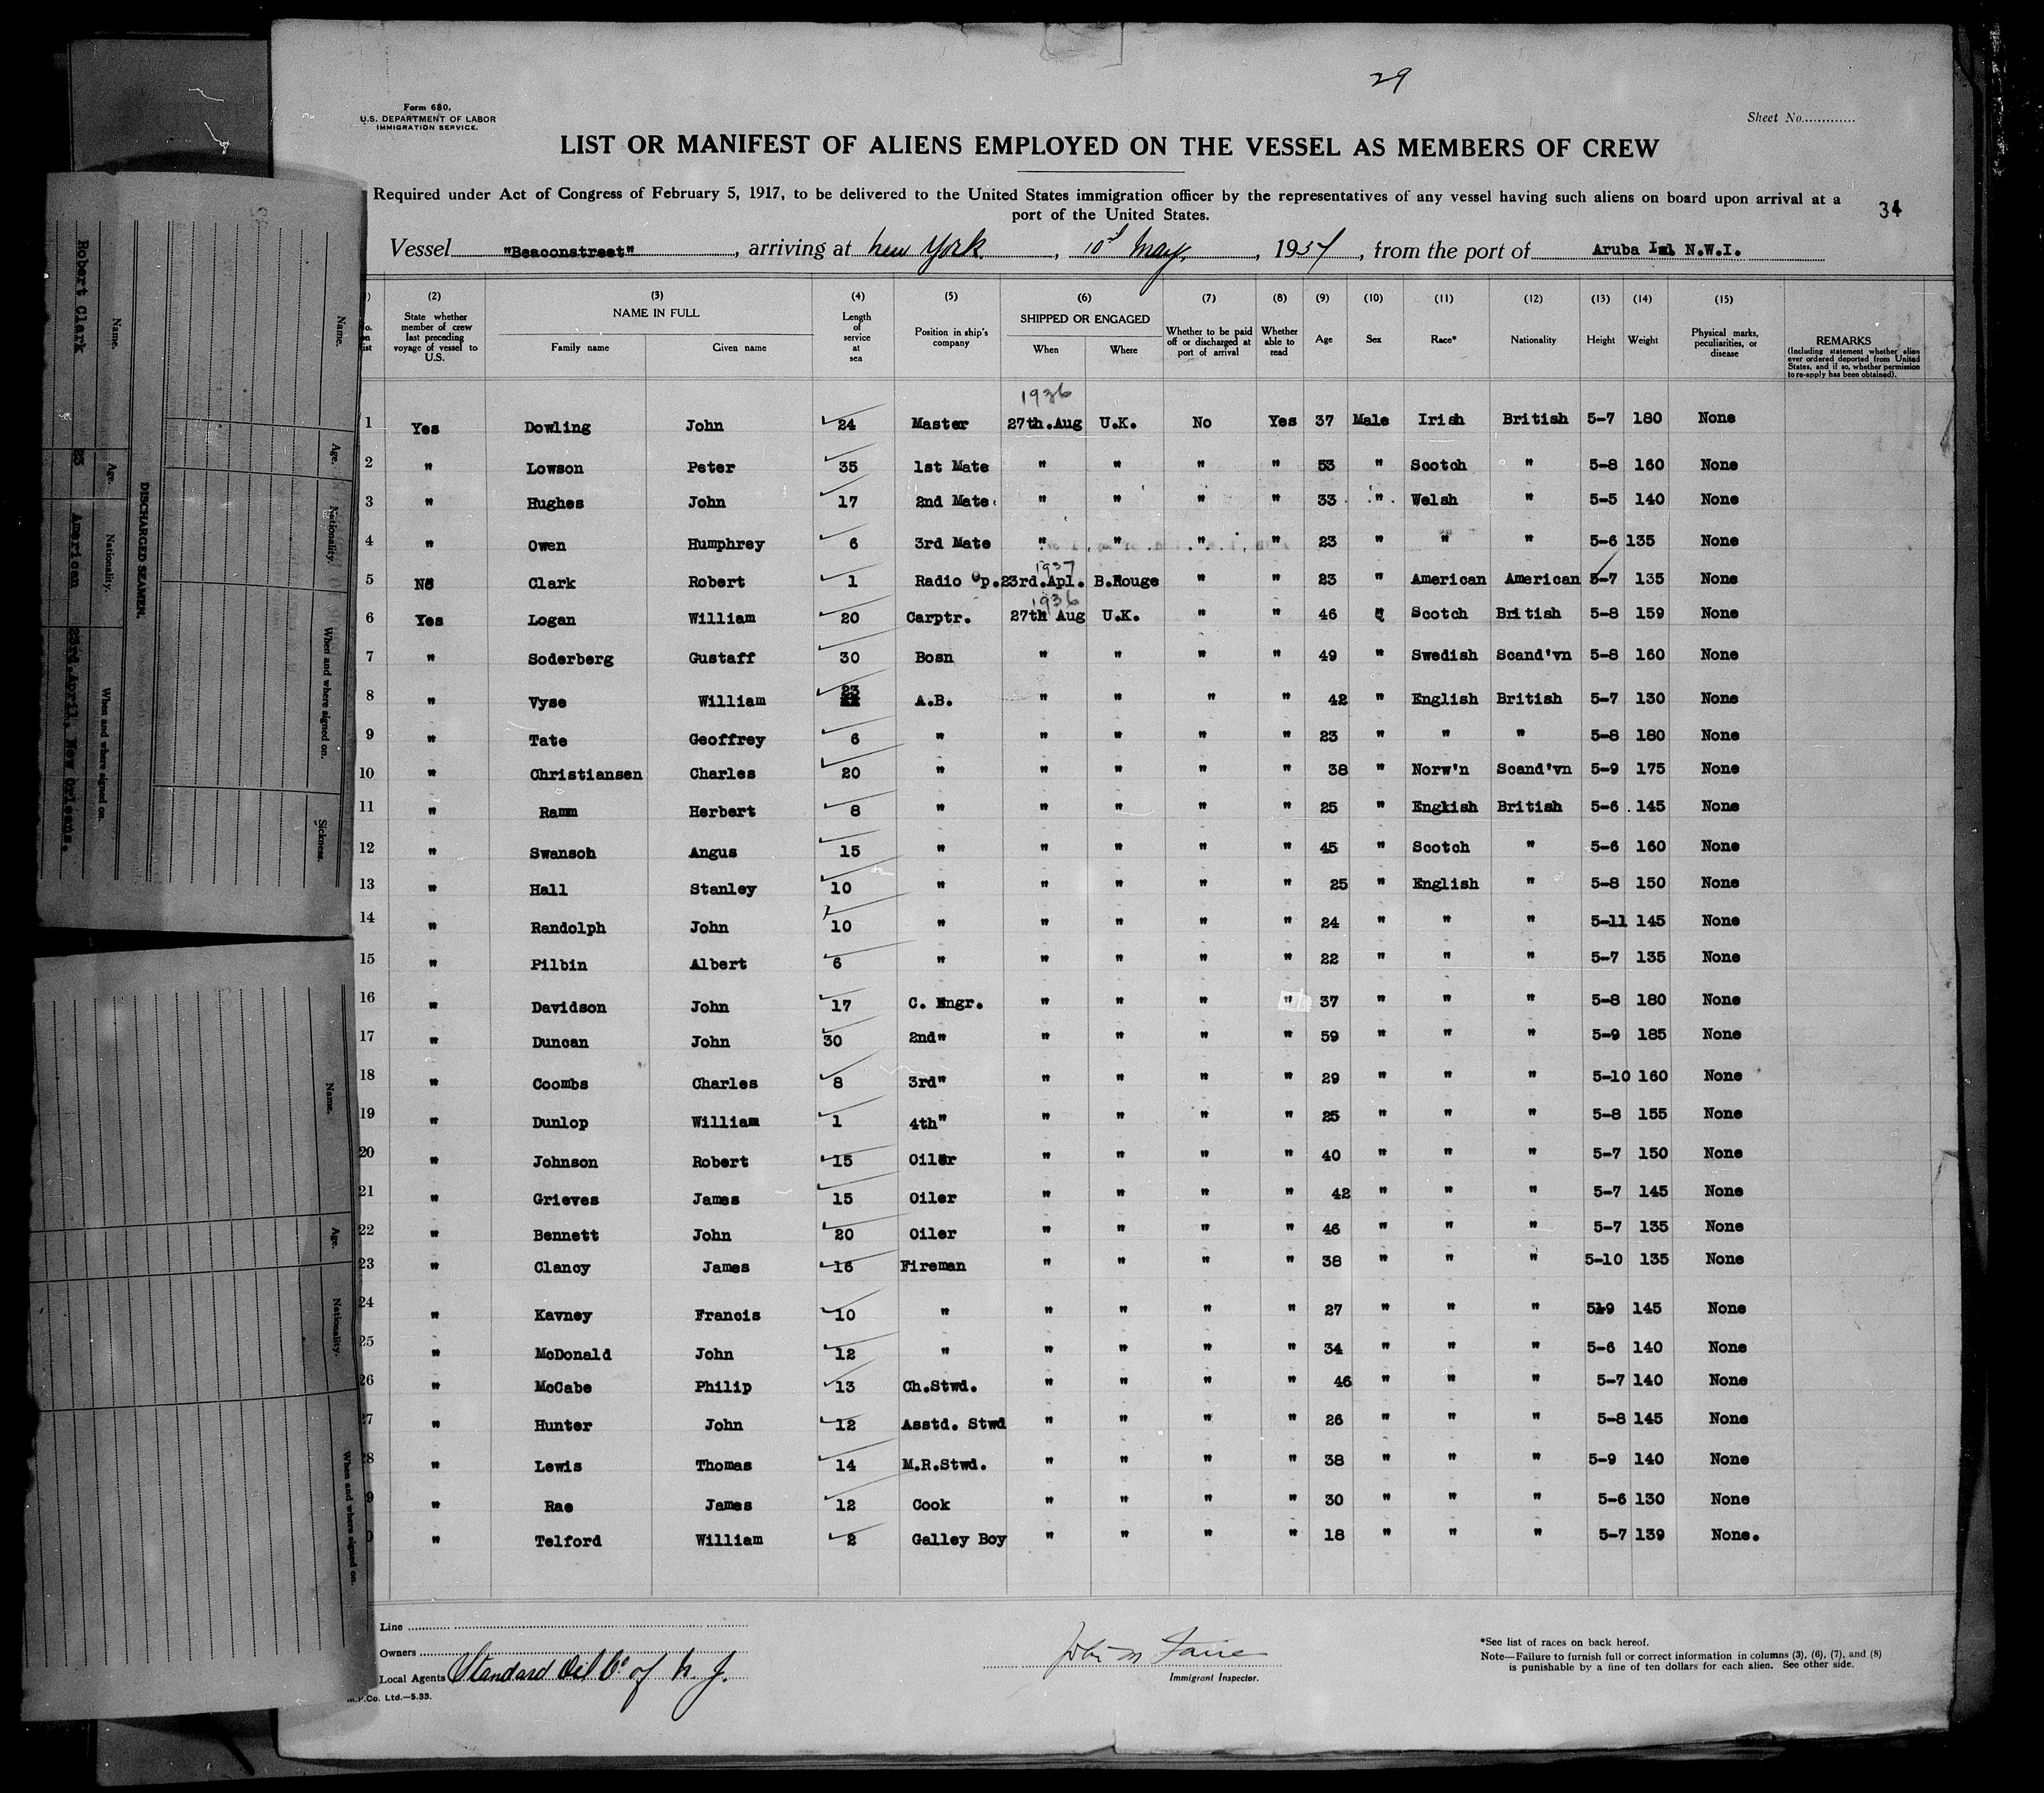 29
Form 680.
U.S. DEPARTMENT OF LABOR
IMMIGRATION SERVICE.
Sheet No.............
LIST OR MANIFEST OF ALIENS EMPLOYED ON THE VESSEL AS MEMBERS OF CREW
Required under Act of Congress of February 5, 1917, to be delivered to the United States immigration officer by the representatives of any vessel having such aliens on board upon arrival at a
port of the United States.
34
Vessel "Beaconstreet", arriving at New York, 10th May, 1937, from the port of Aruba Isl N.W.I.
(2) (3) (4) (5) (6) (7) (8) (9) (10) (11) (12) (13) (14) (15)
State whether member of crew last preceding voyage of vessel to U.S. NAME IN FULL Family name Given name Length of service at sea Position in ship's company SHIPPED OR ENGAGED When Where Whether to be paid off or discharged at port of arrival Whether able to read Age Sex Race* Nationality Height Weight Physical marks, peculiarities, or disease REMARKS (Including statement whether alien ever ordered deported from United States, and if so, whether permission to re-apply has been obtained).
1936
1 Yes Dowling John 24 Master 27th.Aug U.K. No Yes 37 Male Irish British 5-7 180 None
2 " Lowson Peter 35 1st Mate " " " " 53 " Scotch " 5-8 160 None
3 " Hughes John 17 2nd Mate " " " " 33 " Welsh " 5-5 140 None
4 " Owen Humphrey 6 3rd Mate " " " " 23 " " " 5-6 135 None
1937
5 No Clark Robert 1 Radio Op. 23rd.Apl. B.Rouge " " 23 " American American 5-7 135 None
1936
6 Yes Logan William 20 Carptr. 27th Aug U.K. " " 46 " Scotch British 5-8 159 None
7 " Soderberg Gustaff 30 Bosn " " " " 49 " Swedish Scand'vn 5-8 160 None
8 " Vyse William 23 A.B. " " " " 42 " English British 5-7 130 None
9 " Tate Geoffrey 6 " " " " " 23 " " " 5-8 180 None
10 " Christiansen Charles 20 " " " " " 38 " Norw'n Scand'vn 5-9 175 None
11 " Ramm Herbert 8 " " " " " 25 " English British 5-6 145 None
12 " Swanson Angus 15 " " " " " 45 " Scotch " 5-6 160 None
13 " Hall Stanley 10 " " " " " 25 " English " 5-8 150 None
14 " Randolph John 10 " " " " " 24 " " " 5-11 145 None
15 " Pilbin Albert 6 " " " " " 22 " " " 5-7 135 None
16 " Davidson John 17 C. Engr. " " " " 37 " " " 5-8 180 None
17 " Duncan John 30 2nd" " " " " 59 " " " 5-9 185 None
18 " Coombs Charles 8 3rd" " " " " 29 " " " 5-10 160 None
19 " Dunlop William 1 4th" " " " " 25 " " " 5-8 155 None
20 " Johnson Robert 15 Oiler " " " " 40 " " " 5-7 150 None
21 " Grieves James 15 Oiler " " " " 42 " " " 5-7 145 None
22 " Bennett John 20 Oiler " " " " 46 " " " 5-7 135 None
23 " Clancy James 16 Fireman " " " " 38 " " " 5-10 135 None
24 " Kavney Francis 10 " " " " " 27 " " " 5-9 145 None
25 " McDonald John 12 " " " " " 34 " " " 5-6 140 None
26 " McCabe Philip 13 Ch.Stwd. " " " " 46 " " " 5-7 140 None
27 " Hunter John 12 Asstd. Stwd " " " " 26 " " " 5-8 145 None
8 " Lewis Thomas 14 M.R.Stwd. " " " " 38 " " " 5-9 140 None
9 " Rae James 12 Cook " " " " 30 " " " 5-6 130 None
0 " Telford William 2 Galley Boy " " " " 18 " " " 5-7 139 None.
Line
Owners
Local Agents Standard Oil Co of N. J.
M.P.Co. Ltd.—5.33.
Immigrant Inspector.
*See list of races on back hereof.
Note—Failure to furnish full or correct information in columns (3), (6), (7), and (8)
is punishable by a fine of ten dollars for each alien. See other side.
Name. Age. Nationality. When and where signed on. Sickness.
DISCHARGED SEAMEN.
Name. Age. Nationality. When and where signed on.
Robert Clark 23 American 23rd.April. New Orleans.
Name. Age. Nationality. When and where signed on.